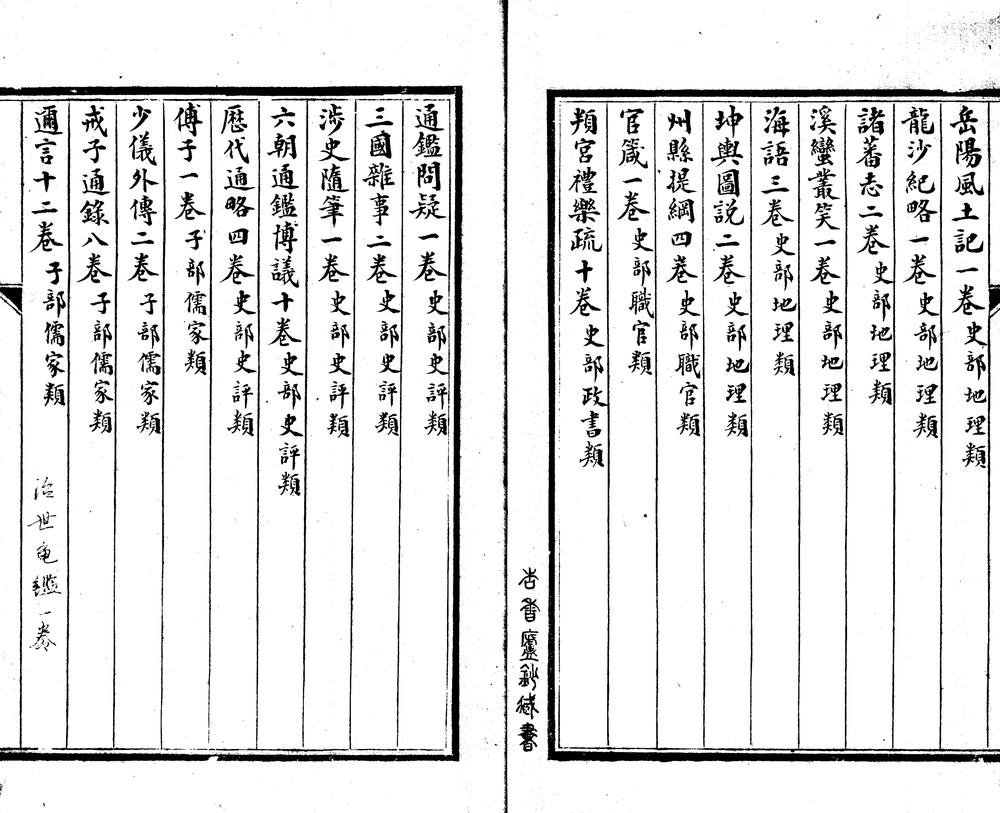 岳陽風土記一卷史部地理類
龍沙紀略一卷史部地理類
諸蕃志二卷史部地理類
溪蠻叢笑一卷史部地理類
海語三卷史部地理類
坤輿圖説二卷史部地理類
州縣提綱四卷史部職官類
官箴一卷史部職官類
頖宮禮樂疏十卷史部政書類
杏香廬鈔藏書
通鑑問疑一卷史部史評類
三國雜事二卷史部史評類
涉史隨筆一卷史部史評類
六朝通鑑博議十卷史部史評類
歷代通略四卷史部史評類
傅子一卷子部儒家類
少儀外傳二卷子部儒家類
戒子通錄八卷子部儒家類
邇言十二卷子部儒家類
治世龜鑑一卷